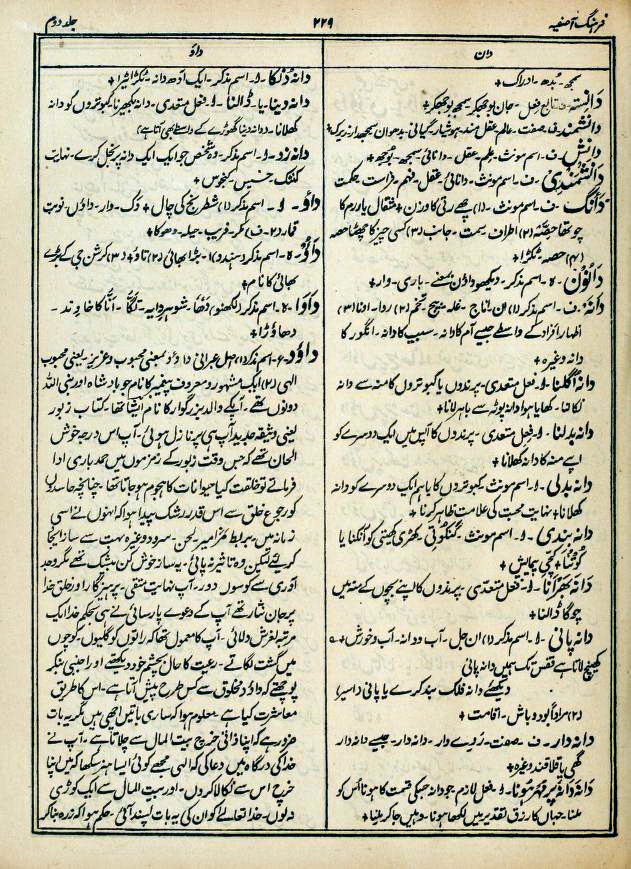 فرہنگ آصفیہ
۲۲۹
جلد دوم
دان
سمجھ۔ بُدھ۔ ادراک +
دانستہ۔ تابع فعل۔ جان بوجھکر سمجھ بوجھکر +
دانشمند۔ ف۔ صفت۔ عالم عقل مند۔ ہوشیار گیانی۔ بدھوان سمجھدار زیرک +
دانِش۔ ف۔ اسم مونث۔ علم۔ عقل۔ دانائی سمجھ۔ بوجھ +
دانشمندی۔ ف۔ اسم مونث۔ دانائی۔ عقل۔ فہم۔ فراست۔ حکمت
دانگ۔ ف۔ اسم مونث۔ (۱) چھ رتی کا وزن + مثقال یا درم کا
چوتھا حصّہ (۲) اطراف۔ سمت۔ جانب (۳) کسی چیز کا چھٹا حصہ
(۴) حصہ۔ ٹکڑا +
داؤں۔ ہ۔ اسم مذکر۔ دیکھو داؤں بمعنے۔ باری۔ وار +
دانہ۔ ف۔ اسم مذکر (۱) ان۔ اناج۔ غلہ۔ بیج۔ تخم (۲) روا۔ (۳)
اظہار افراد کے واسطے جیسے آم کا دانہ۔ سیب کا دانہ۔ انگور کا
دانہ وغیرہ +
دانہ اگلنا۔ ا۔ فعل متعدی۔ پرندوں یا کبوتروں کا منہ سے دانہ
نکالنا۔ کھایا ہوا دانہ پوٹہ سے باہر لانا +
دانہ بدلنا۔ ا۔ فعل متعدی۔ پرندوں کا آپس میں ایک دوسرے کو
اپنے منہ کا دانہ کھلانا +
دانہ بدلی۔ ا۔ اسم مونث۔ کبوتروں کا باہم ایک دوسرے کو دانہ
کھلانا + نہایت محبت کی علامت ظاہر کرنا +
دانہ بندی۔ ا۔ اسم مونث۔ کنکُوتی۔ کھڑی کھیتی کو آنکنا یا
کُوتنا + کچی پیمایش +
دانہ بھرانا۔ ا۔ فعل متعدی۔ پرندوں کا اپنے بچوں کے منہ میں
چوگا ڈالنا +
دانہ پانی۔ ا۔ اسم مذکر (۱) ان جل۔ آب و دانہ۔ آب و خورش +
کھینچ لاتا ہے قفس تک ہمیں دانہ پانی
دیکھئے دانہ فلک بند کرے یا پانی (اسیر)
(۲) مراداً بود و باش۔ اقامت +
دانہ دار۔ ف۔ صفت۔ رَوے دار۔ دانہ دار۔ جیسے دانہ دار
گھی یا قلاقند وغیرہ +
دانہ دانہ پر مُہر ہونا۔ ا۔ فعل لازم جو دانہ جسکی قسمت کا ہو نا اُس کو
ملنا۔ جہاں کا رزق تقدیر میں لکھا ہونا۔ وہیں جا کر ملنا +
داؤ
دانہ دُنکا۔ ا۔ اسم مذکر۔ ایک آدھ دانہ۔ ٹکڑا ٹیرا +
دانہ دینا۔ یا۔ ڈالنا۔ ا۔ فعل متعدی۔ دانہ بکھیرنا کبوتروں کو دانہ
کھلانا۔ (دانہ دینا گھوڑے کے واسطے بھی آتا ہے)
دانہ زد۔ ا۔ اسم مذکر۔ وہ شخص جو ایک ایک دانہ پر بخل کرے۔ نہایت
کنٹک۔ خسیس کنجوس +
داؤ۔ ا۔ اسم مذکر (۱) شطرنج کی چال + زک۔ وار۔ داؤں۔ نوبتِ
قمار (۲۔ ف) مکر۔ فریب۔ حیلہ۔ دھوکا +
داؤ۔ ہ۔ اسم مذکر (ہندو) ۱۔ بڑا بھائی (۲) تاؤ (۳) کرشن جی کے بڑے
بھائی کا نام +
داوا۔ ہ۔ اسم مذکر (لکھنؤ) دَدّا۔ شوہر دایہ۔ اَنّا کا خاوند۔
داؤد۔ ع۔ اسم مذکر (۱) اصل عبرانی داؤد بمعنی محبوب و عزیز۔ یعنی محبوب
الہی (۲) ایک مشہور و معروف پیغمبر کا نام جو بادشاہ اور نبی اللہ
دونوں تھے۔ آپکے والد بزرگوار کا نام ایشا تھا۔ کتاب زبور
یعنی وثیقہ جدید آپ ہی پر نازل ہوئی۔ آپ اس درجہ خوش
الحان تھے کہ جس وقت زبور کے زمزموں میں حمد باری ادا
فرماتے تو خلقت کیا حیوانات کا ہجوم ہو جاتا تھا۔ چنانچہ حاسدوں
کو رجوع خلق سے اس قدر رشک پیدا ہوا کہ انہوں نے اسی
زمانہ میں بربط مزامیر۔ لحن۔ سرود وغیرہ بہت سے ساز ایجاد
کر لئے لیکن وہ تاثیر نہ پائی۔ یہ ساز خوش کن بیشک تھے مگر وجد
آوری سے کوسوں دور۔ آپ نہایت متقی۔ پرہیزگار اور خلق خدا
پر جان نثار تھے آپ کے دعوے پارسائی نے ہی بحکم خدا ایک
مرتبہ لغزش دلائی۔ آپ کا معمول تھا کہ راتوں کو گلیوں۔ کوچوں
میں گشت لگاتے۔ رعیت کا حال بچشم خود دیکھتے اور اجنبی بنکر
پوچھتے کہ داؤد مخلوق سے کس طرح پیش آتا ہے۔ اس کا طریق
معاشرت کیا ہے۔ معلوم ہوا کہ ساری باتیں اچھی ہیں مگر یہ بات
ضرور ہے کہ اپنا ذاتی خرچ بیت المال سے چلاتا ہے۔ آپ نے
خدا کی درگاہ میں دعا کی کہ الہی مجھے کوئی ایسا ہنر سکھا کہ میں اپنا
خرچ اس سے نکالا کروں۔ اور بیت المال سے ایک کوڑی
نہ لوں۔ خدا تعالے کو ان کی یہ بات پسند آئی۔ حکم ہوا کہ زرہ بنا کر